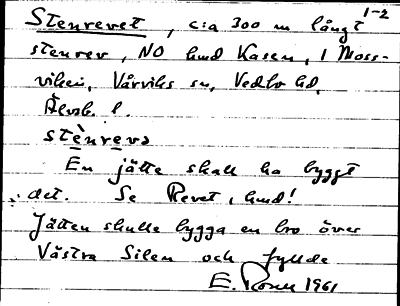 1-2
Stenrevet, c:a 300 m långt
stenrev, NO lund Kasen, i Moss-
viken, Vårviks sn, Vedbo hd,
Älvsb. l.
stènrevə
En jätte skall ha byggt
det. Se Revet, lund!
Jätten skulle bygga en bro över
Västra Silen och fyllde
E. 1961